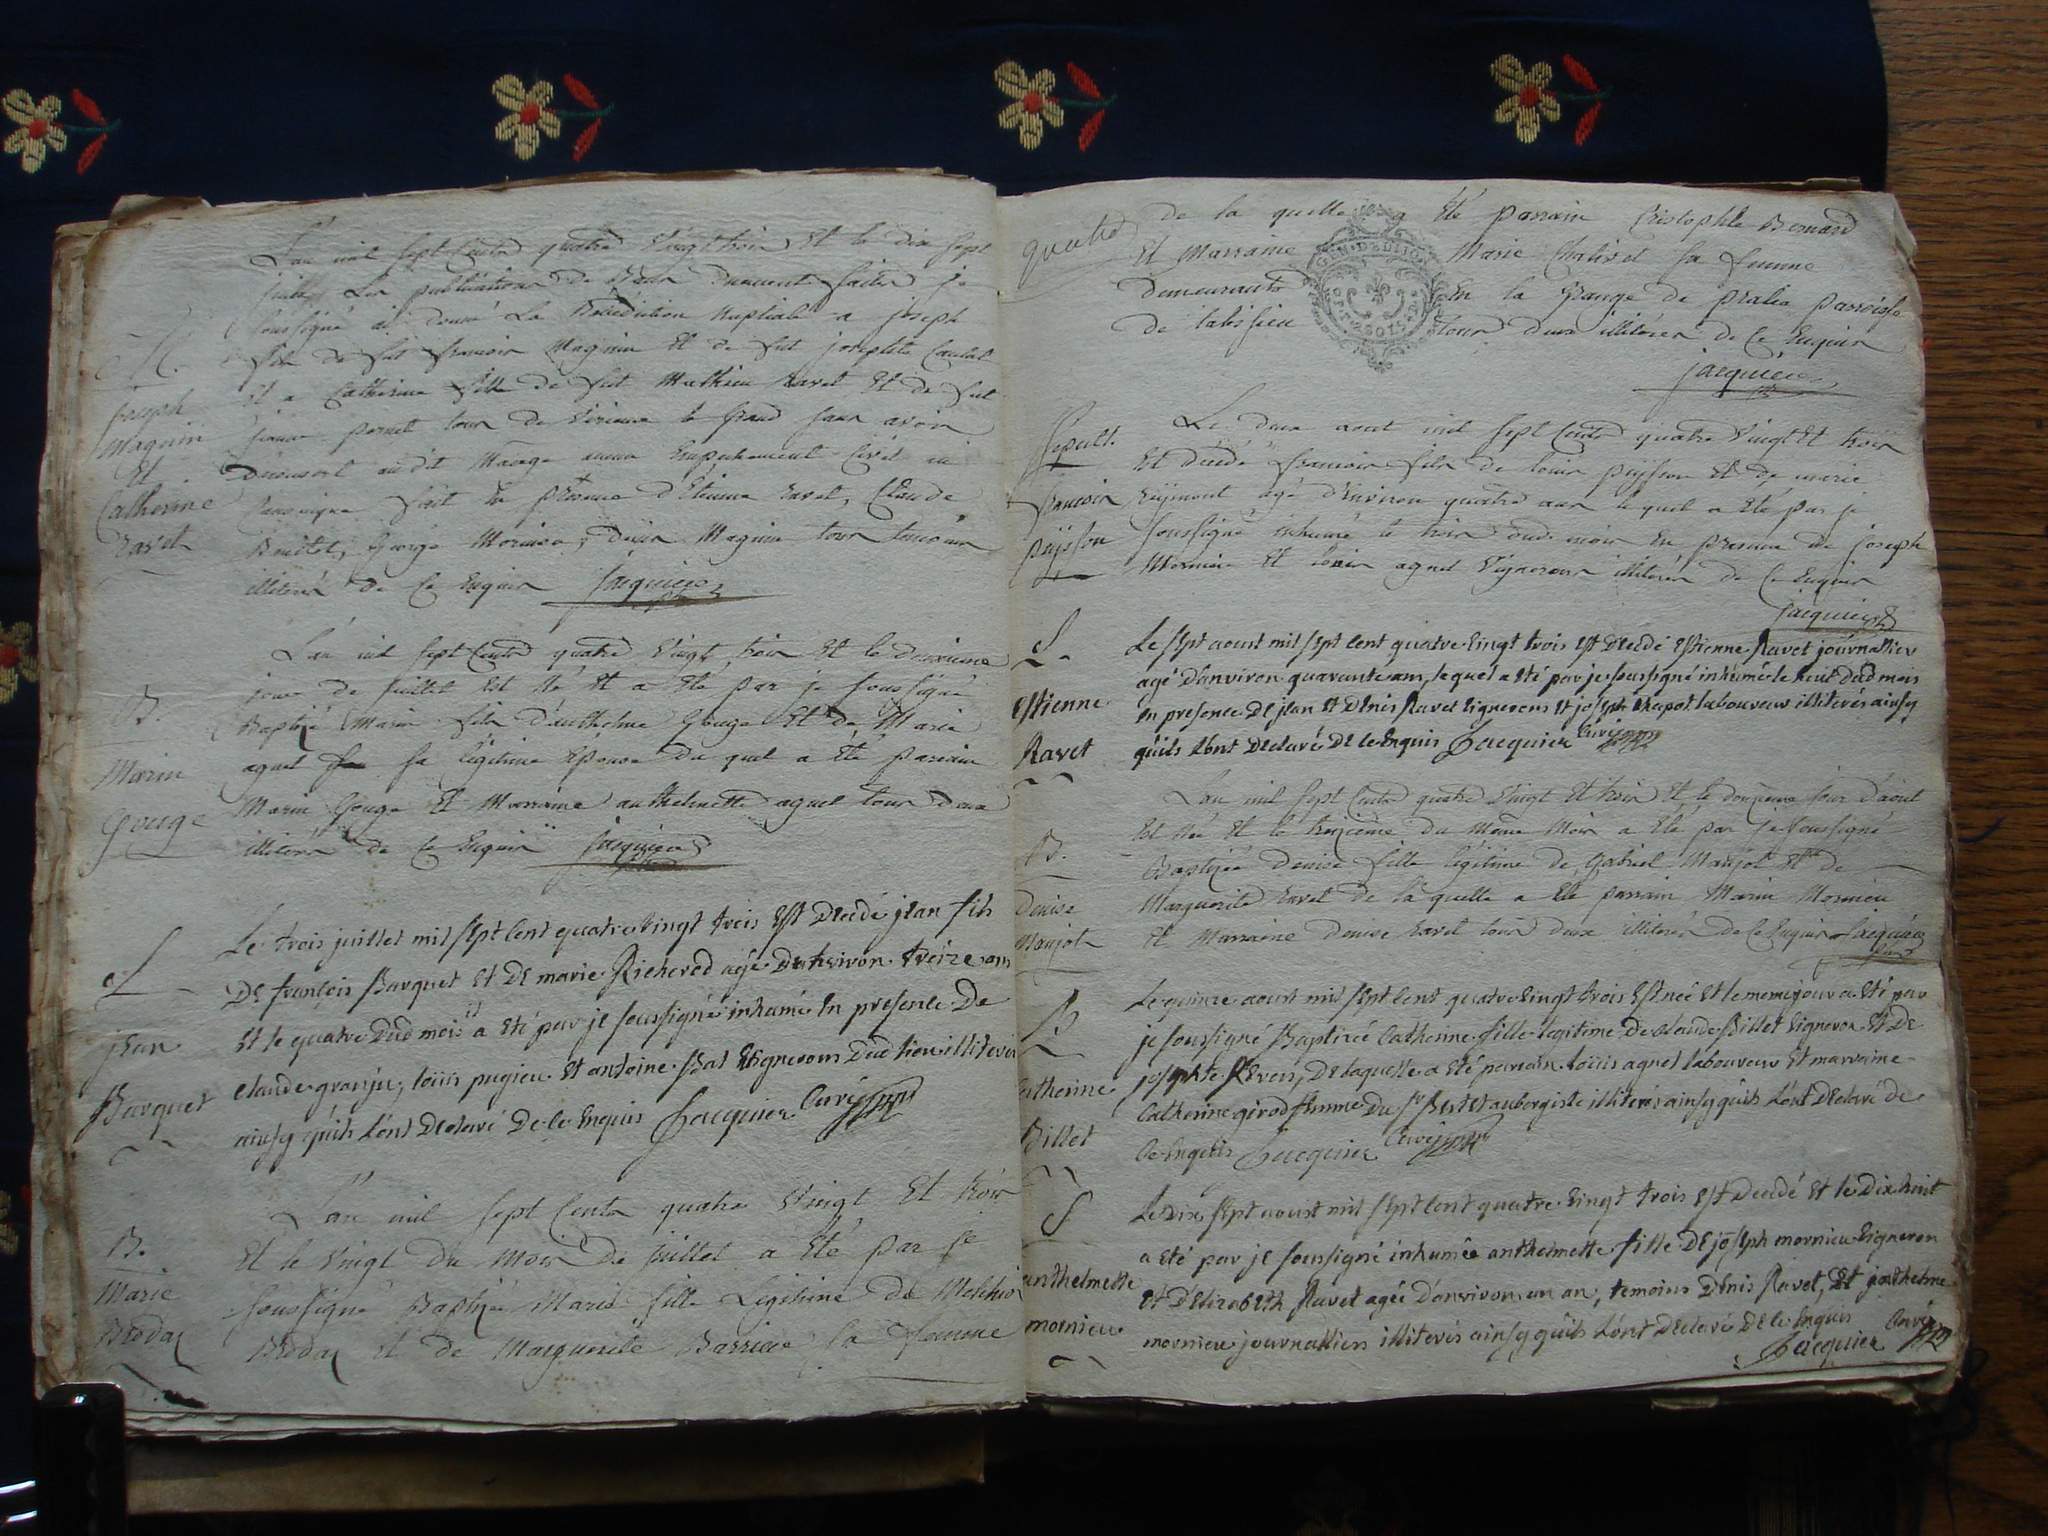 L'an mil sept Cents quatre Vingt trois Et le dix sept
juillet Les publications de Bans duement faites je
soussigné ai donné La Bénédiction nuptiale a joseph
fils de fut francois Maguin Et de fut josephte
M.
Joseph
Maguin
Et
Catherine
ravet
Et a Catherine fille de fut Mathieu ravet Et de fut
jeanne pernet tous de Virieux le Grand sans avoir
decouvert audit Mariage aucun Empechement Civil ni
Canonique fait En presence d'Etienne ravet, Claude
George Mornieu, Maguin tous temoins
illiterés de Ce Enquis Jacquier
L'an mil sept Cents quatre Vingt trois Et le deuxieme
jour de juillet Est Né Et a Eté par je soussigné
B.
Marin
Gouge
Baptisé Marin fils d'authelme Gouge Et de Marie
aguet sa légitime Epouse du quel a Eté parrain
Marin Gouge Et Marraine authelmette aguet tous deux
illiterés de Ce Enquis Jacquier
S
jean
Barquet
Le trois juillet mil sept cent quatre Vingt trois Est Decédé jean fils
De françois Barquet Et De marie Richerod agé D'environ treize ans
Et le quatre Dud mois il a Eté par je soussigné inhumé En presence De
claude granju, loüis pugieu Et antoine Bal Vignerons Dud lieu illiterés
ainsy qu'ils L'ont Declaré De ce Enquis Jacquier Curé
B.
Marie
Broday
L'an mil sept Cents quatre Vingt Et trois
Et le Vingt du Mois De juillet a Eté par je
soussigné Baptisée Marie fille Légitime de Melchior
Broday et de Marguerite Barriere sa femme
quatre
de la quelle a Eté parrain Cristophle Bernard
Et Marraine Marie Chalivet sa femme
demeurants En la Grange de pralia parroisse
de tous deux illiterés de Ce Enquis
GEN. D
jacquier
Sepult.
francois
püjsson
Le deux aout mil sept Cents quatre Vingt Et trois
Est decédé francois fils de louis püjsson Et de marie
Reijmont agé d'Environ quatre ans lequel a Eté par je
soussigné inhumé le trois dud. mois En presence de joseph
Mornieu Et louis aguet Vignerons illiterés de Ce Enquis
Jacquier
S
Estienne
Ravet
Le sept aoust mil sept cent quatre Vingt trois Est Decédé Estienne Ravet journallier
agé D'anviron quarante ans, lequel a Eté par je soussigné inhumé le huit Dud mois
En presence De jean Et Denis Ravet Vignerons Et joseph Chapot laboureur illiterés ainsy
qu'ils L'ont Declaré De ce Enquis Jacquier Curé
B.
Denise
Maujot
L'an mil sept Cents quatre Vingt Et trois Et le douzieme jour D'aout
Est Née Et le treizieme du Même Mois a Eté par je soussigné
Baptisée Denise fille légitime de Gabriel Maujot Et de
Marguerite ravet de la quelle a Eté parrain Marin Mornieu
Et Marraine Denise ravet tous deux illiterés de Ce Enquis Jacquier
B
Catherine
Billet
Le quinze aoust mil sept cent quatre Vingt trois Est née Et le meme jour a Eté par
je soussigné Baptizée Catherine fille legitime De claude Billet Vigneron Et De
josephte Revers, De laquelle a Eté parrain loüis aguet laboureur Et marraine
Catherine girod femme Du Sr Bertet aubergiste illiterés ainsy qu'ils L'ont Declaré de
Ce Enquis Jacquier Curé
S
anthelmette
mornieu
Le Dix sept aoust mil sept cent quatre Vingt trois Est Decedé Et le Dix huit
a Eté par je soussigné inhumée anthelmette fille De joseph mornieu Vigneron
Et D'Elizabeth Ravet agée D'anviron un an, temoins Denis Ravet, Et janthelme
mornieu journalliers illiterés ainsy qu'ils L'ont Declaré De ce Enquis
Jacquier Curé